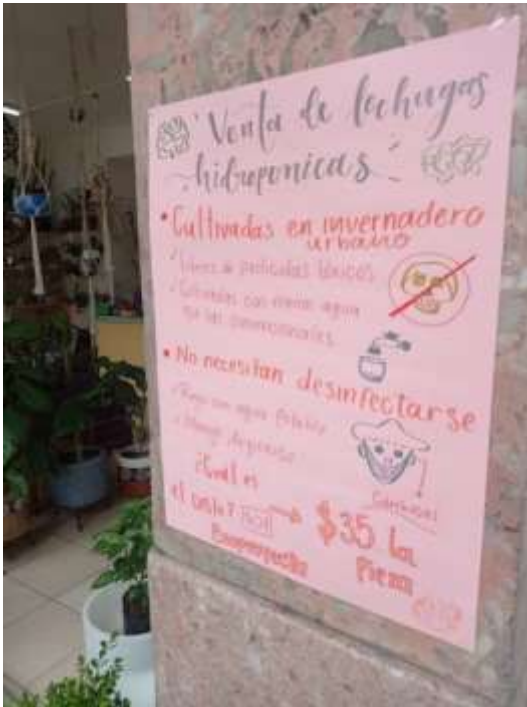 Venta de lechugas
hidroponicas
• Cultivadas en invernadero
urbano
✓ Libres de particulas tóxicas
✓ Cultivadas con menos agua
que las convencionales
• No necesitan desinfectarse
✓ Riego con agua Potable
✓ Manejo
¿Cual es
el costo?
$35 la
Pieza